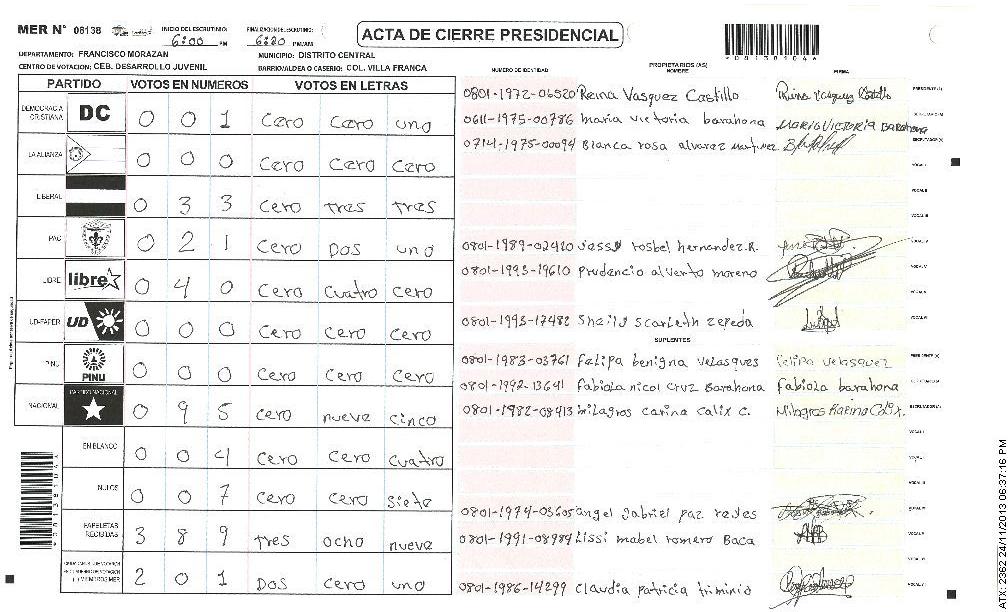 MER N° 08138
INICIO DEL ESCRUTINIO: 6:00 PM
FINALIZACION DEL ESCRUTINIO: 6:20 PM/AM
ACTA DE CIERRE PRESIDENCIAL
DEPARTAMENTO: FRANCISCO MORAZAN
MUNICIPIO: DISTRITO CENTRAL
CENTRO DE VOTACION: CEB. DESARROLLO JUVENIL
BARRIO/ALDEA O CASERIO: COL. VILLA FRANCA
*08138104*
PARTIDO VOTOS EN NUMEROS VOTOS EN LETRAS
DEMOCRACIA CRISTIANA DC 0 0 1 cero cero uno
LA ALIANZA 0 0 0 cero cero cero
LIBERAL 0 3 3 cero tres tres
PAC 0 2 1 cero Dos uno
LIBRE libre 0 4 0 cero cuatro cero
UD-FAPER UD 0 0 0 cero cero cero
PINU PINU 0 0 0 cero cero cero
NACIONAL PARTIDO NACIONAL 0 9 5 cero nueve cinco
EN BLANCO 0 0 4 cero cero cuatro
NULOS 0 0 7 cero cero siete
PAPELETAS RECIBIDAS 3 8 9 tres ocho nueve
2 0 1 Dos cero uno
NUMERO DE IDENTIDAD PROPIETARIOS (AS) NOMBRE FIRMA
0801-1972-06520 Reina Vasquez Castillo Reina Vasquez Castillo PRESIDENTE(A)
0611-1975-00786 maria victoria barahona MARIA VICTORIA BARAHONA SECRETARIO(A)
0714-1975-00094 Blanca rosa alvarez martinez ESCRUTADOR(A)
VOCAL I
VOCAL II
VOCAL III
0801-1989-02420 rosbel hernandez.R. VOCAL IV
0801-1993-19610 prudencio alverto moreno VOCAL V
0801-1993-17482 Sheily Scarleth zepeda
SUPLENTES
0801-1983-03761 Felipa benigna velasques Felipa velasquez PRESIDENTE(A)
0801-1992-13641 Fabiola nicol cruz Barahona fabiola barahona SECRETARIO(A)
0801-1982-08413 milagros carina calix c. Milagros Karina Calix. ESCRUTADOR(A)
VOCAL I
0801-1974-03605 angel gabriel paz reyes
0801-1991-08984 Lissi mabel romero Baca
0801-1986-14299 claudia patricia triminio
ATX-2362 24/11/2013 06:37:16 PM